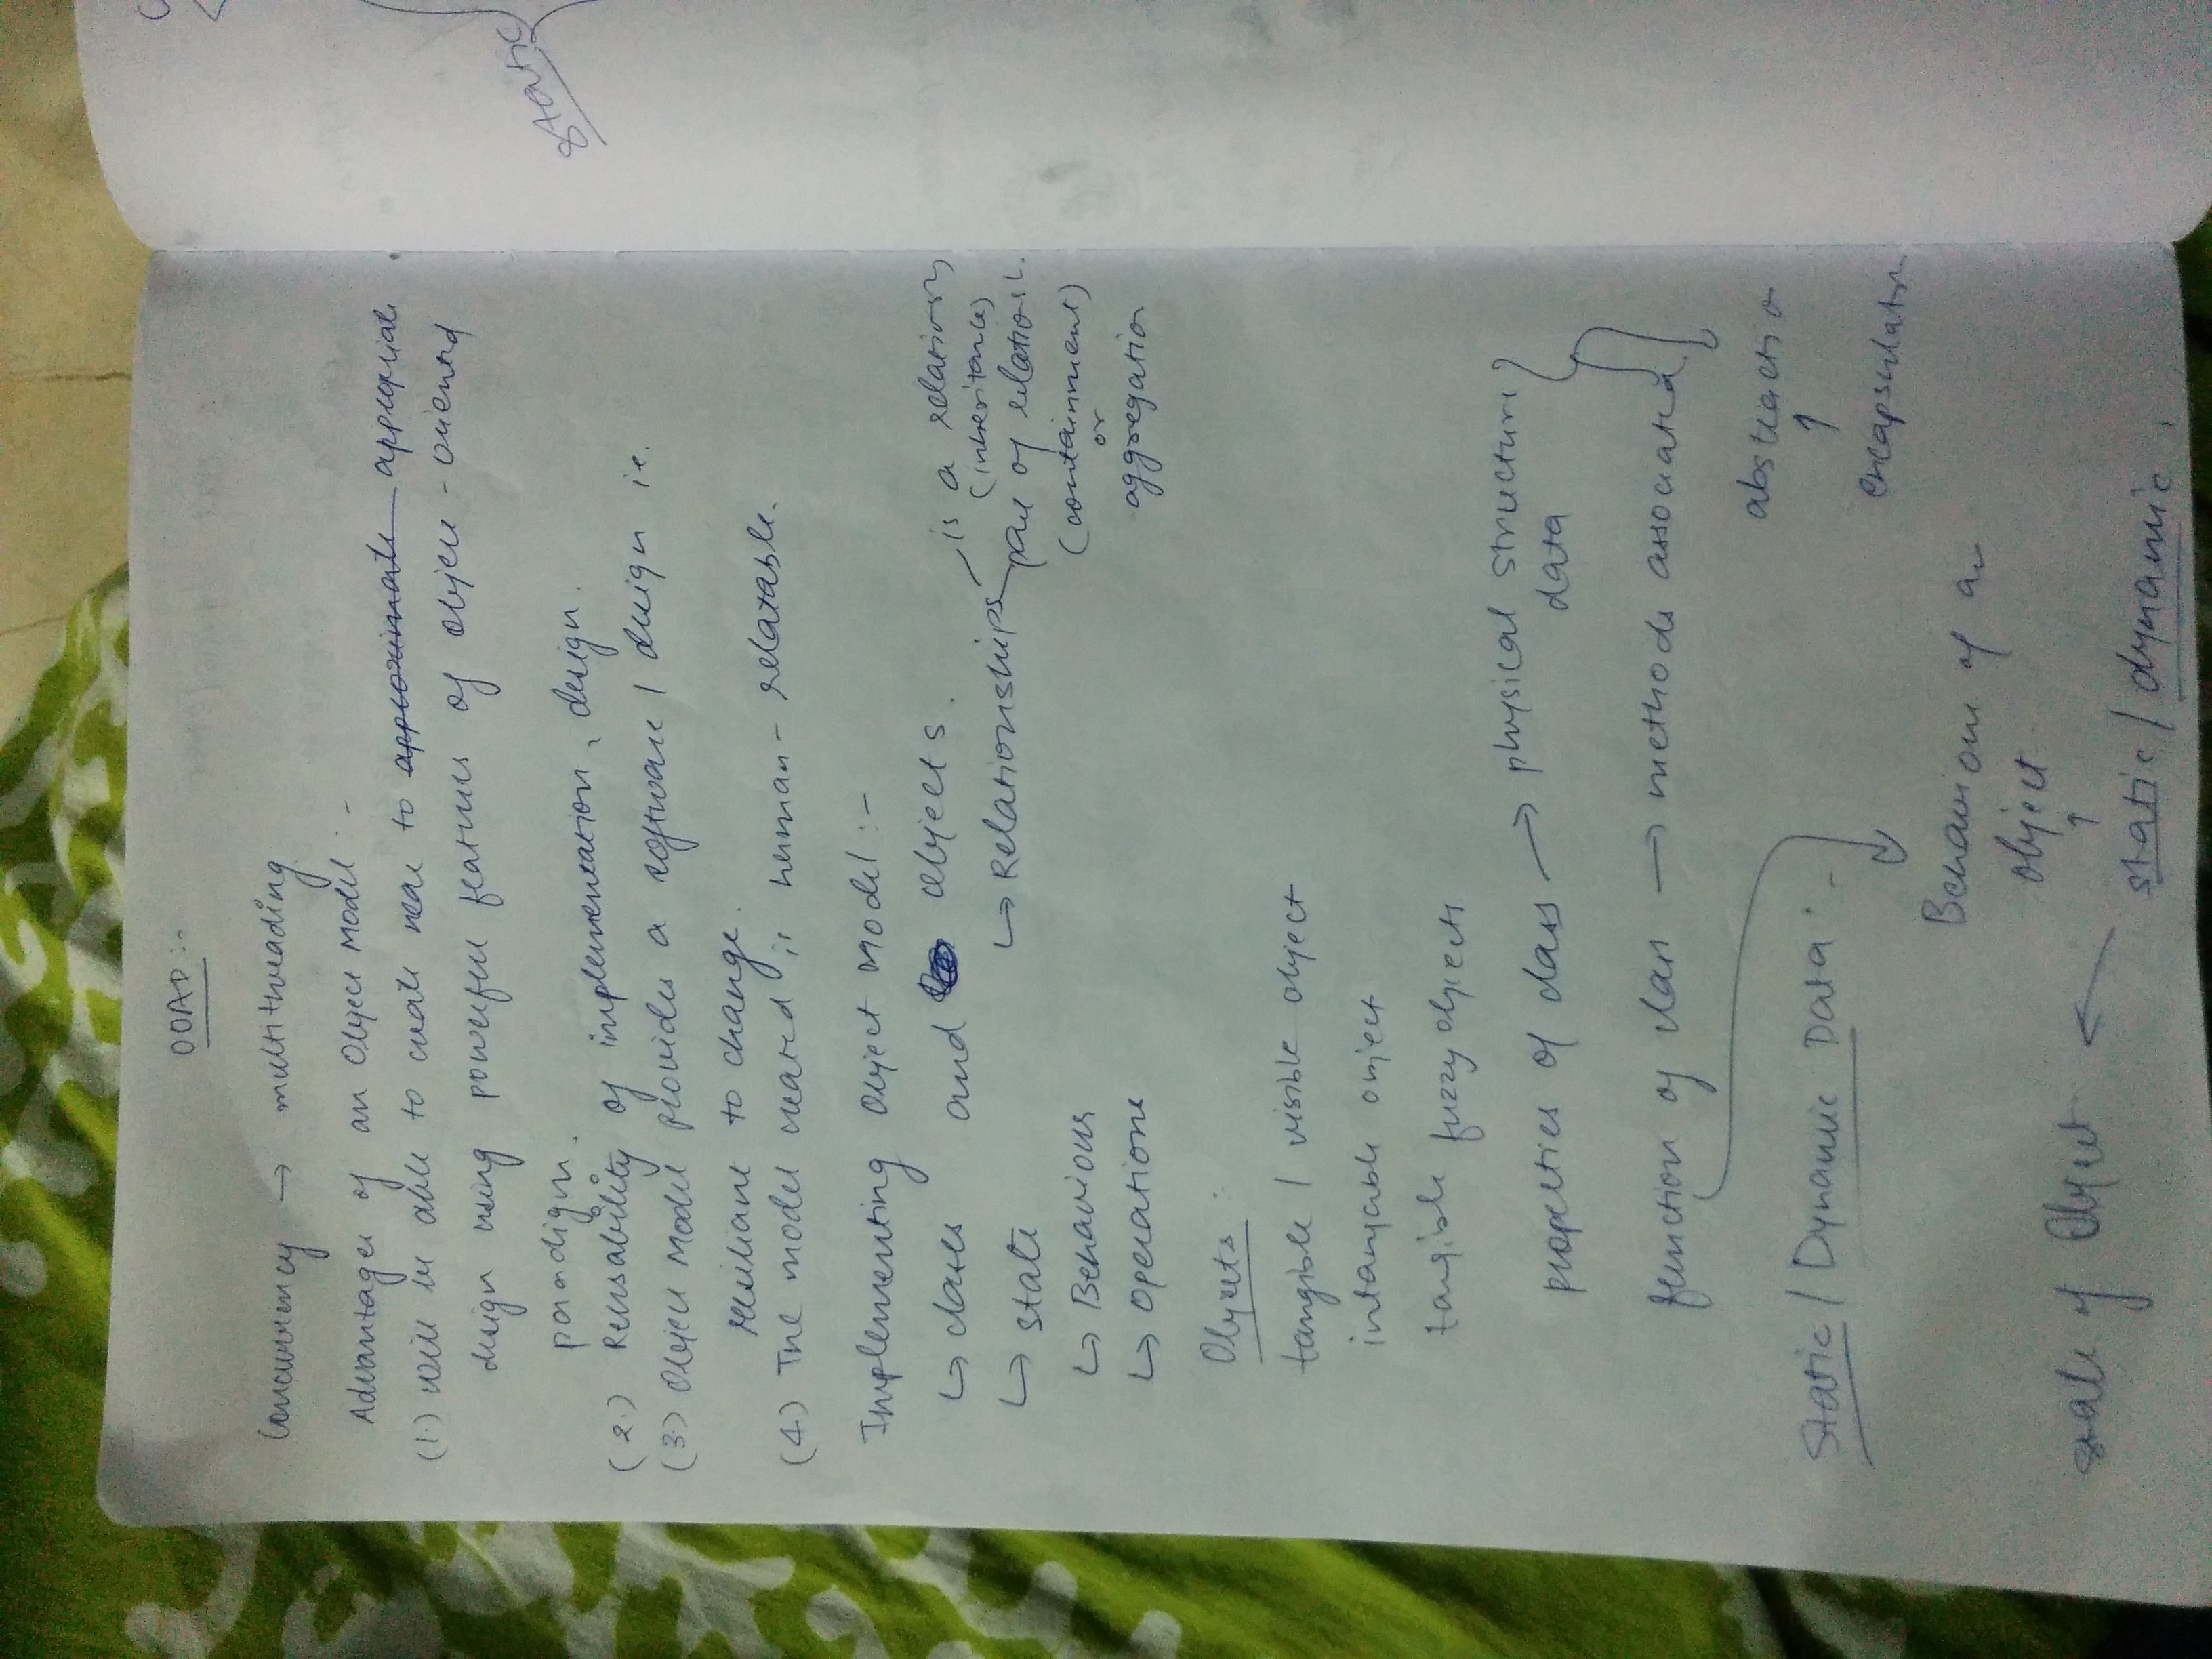 OOAD :-
Concurrency → multithreading
Advantages of an Object Model :-
(1.) will be able to create near to approximate appropriate
design using powerful features of object - oriented
paradigm.
(2.) Reusability of implementation, design.
(3.) Object Model provides a software / design ie.
resiliant to change.
(4.) The model created is human - relatable.
Implementing Object Model :-
↳ classes and objects.
↳ state
↳ Relationships
is a relation
(inheritance)
part of relation
(containment)
or
aggregation
↳ Behaviours
↳ operations
Objects :
tangible / visible object
intangible object
tangible fuzzy objects
properties of class → physical structure
data
function of class → methods associated
abstraction
encapsulation
Static / Dynamic Data : -
Behaviour of an
object
state of Object
static / dynamic.